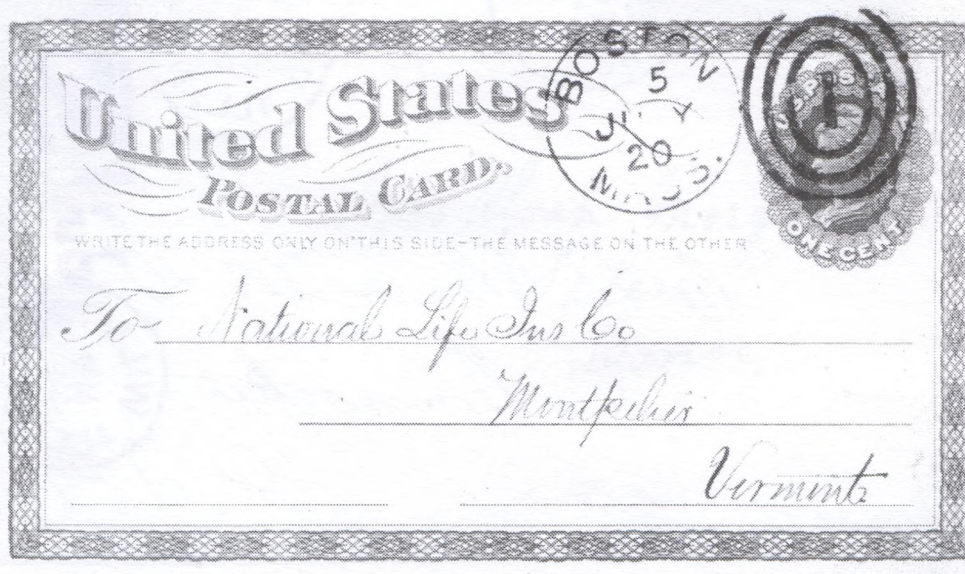 United States
POSTAL CARD.
BOSTON
5
JULY
20
MASS.
U.S. POSTAGE
1
ONE CENT
WRITE THE ADDRESS ONLY ON THIS SIDE-THE MESSAGE ON THE OTHER
To National Life Ins Co
Montpelier
Vermont